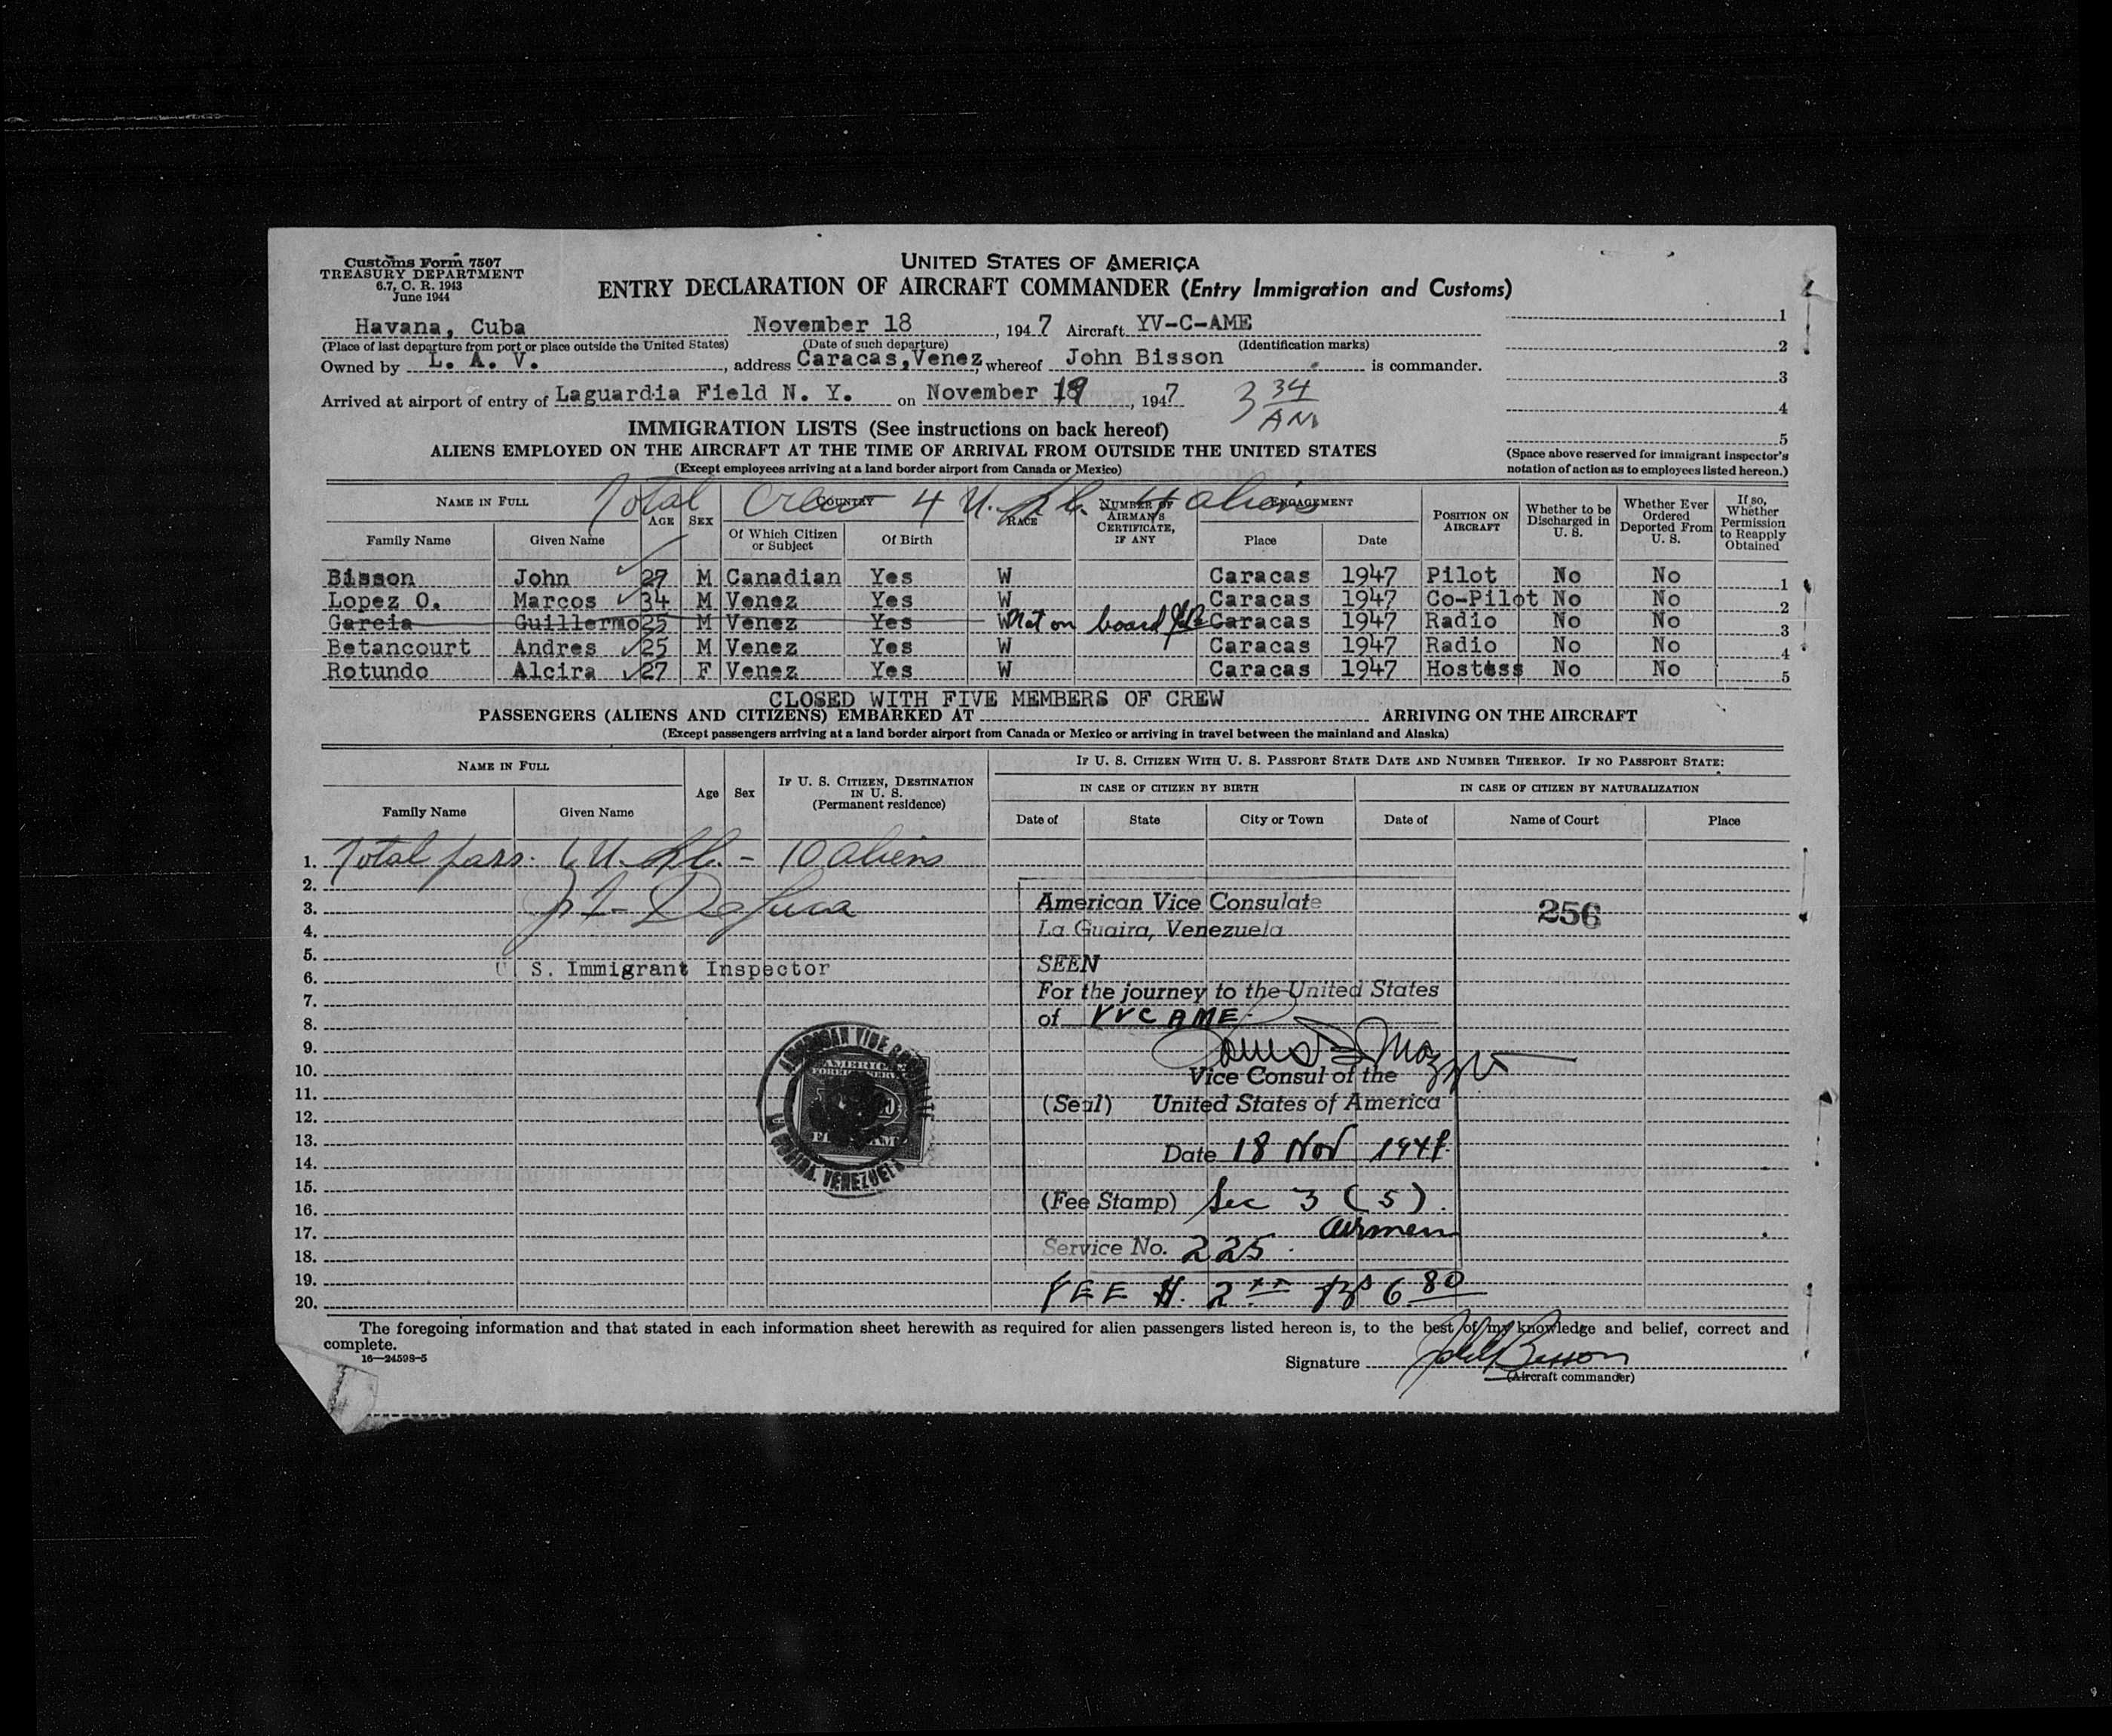 Customs Form 7507
TREASURY DEPARTMENT
6.7, C. R. 1943
June 1944
UNITED STATES OF AMERICA
ENTRY DECLARATION OF AIRCRAFT COMMANDER (Entry Immigration and Customs)
Havana, Cuba November 18, 1947 Aircraft YV-C-AME
(Place of last departure from port or place outside the United States) (Date of such departure) (Identification marks)
Owned by L. A. V., address Caracas, Venez, whereof John Bisson is commander.
Arrived at airport of entry of Laguardia Field N. Y. on November 19, 1947 3 34 AM
1
2
3
4
5
(Space above reserved for immigrant inspector's
notation of action as to employees listed hereon.)
IMMIGRATION LISTS (See instructions on back hereof)
ALIENS EMPLOYED ON THE AIRCRAFT AT THE TIME OF ARRIVAL FROM OUTSIDE THE UNITED STATES
(Except employees arriving at a land border airport from Canada or Mexico)
Total Crew 4 U. 4 aliens
NAME IN FULL AGE SEX COUNTRY RACE NUMBER OF AIRMAN'S CERTIFICATE, IF ANY ENGAGEMENT POSITION ON AIRCRAFT Whether to be Discharged in U. S. Whether Ever Ordered Deported From U. S. If so, Whether Permission to Reapply Obtained
Family Name Given Name Of Which Citizen or Subject Of Birth Place Date
Bisson John 27 M Canadian Yes W Caracas 1947 Pilot No No 1
Lopez O. Marcos 34 M Venez Yes W Caracas 1947 Co-Pilot No No 2
Garcia Guillermo 25 M Venez Yes W Not on board Caracas 1947 Radio No No 3
Betancourt Andres 25 M Venez Yes W Caracas 1947 Radio No No 4
Rotundo Alcira 27 F Venez Yes W Caracas 1947 Hostess No No 5
CLOSED WITH FIVE MEMBERS OF CREW
PASSENGERS (ALIENS AND CITIZENS) EMBARKED AT ARRIVING ON THE AIRCRAFT
(Except passengers arriving at a land border airport from Canada or Mexico or arriving in travel between the mainland and Alaska)
NAME IN FULL Age Sex IF U. S. CITIZEN, DESTINATION IN U. S. (Permanent residence) IF U. S. CITIZEN WITH U. S. PASSPORT STATE DATE AND NUMBER THEREOF. IF NO PASSPORT STATE:
IN CASE OF CITIZEN BY BIRTH IN CASE OF CITIZEN BY NATURALIZATION
Family Name Given Name Date of State City or Town Date of Name of Court Place
1. Total pass. 6 U. - 10 aliens
2.
3.
4.
5.
6. U. S. Immigrant Inspector
7.
8.
9.
10.
11.
12.
13.
14.
15.
16.
17.
18.
19.
20.
American Vice Consulate
La Guaira, Venezuela
SEEN
For the journey to the United States
of YVC AME
Vice Consul of the
(Seal) United States of America
Date 18 Nov 1947
(Fee Stamp) Sec 3 (5).
Airmen
Service No. 225.
FEE $. 2 Bs 6 80
256
AMERICAN VICE CONSULATE
LA GUAIRA, VENEZUELA
AMERICAN
FOREIGN SERVICE
FEE STAMP
The foregoing information and that stated in each information sheet herewith as required for alien passengers listed hereon is, to the best of my knowledge and belief, correct and
complete.
16—24598-5
Signature John Bisson
(Aircraft commander)